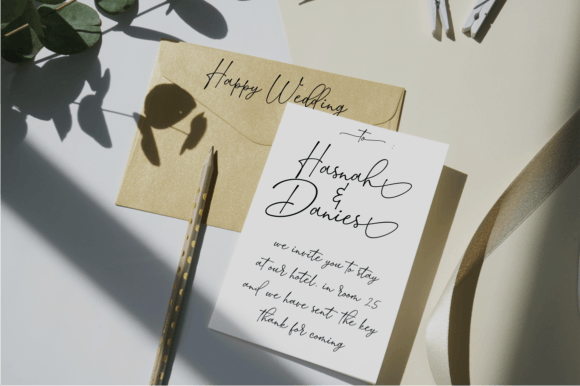 Happy Wedding
to :
Hasnah
&
Danies
we invite you to stay
at our hotel. in room 25
and we have sent the key
thank for coming